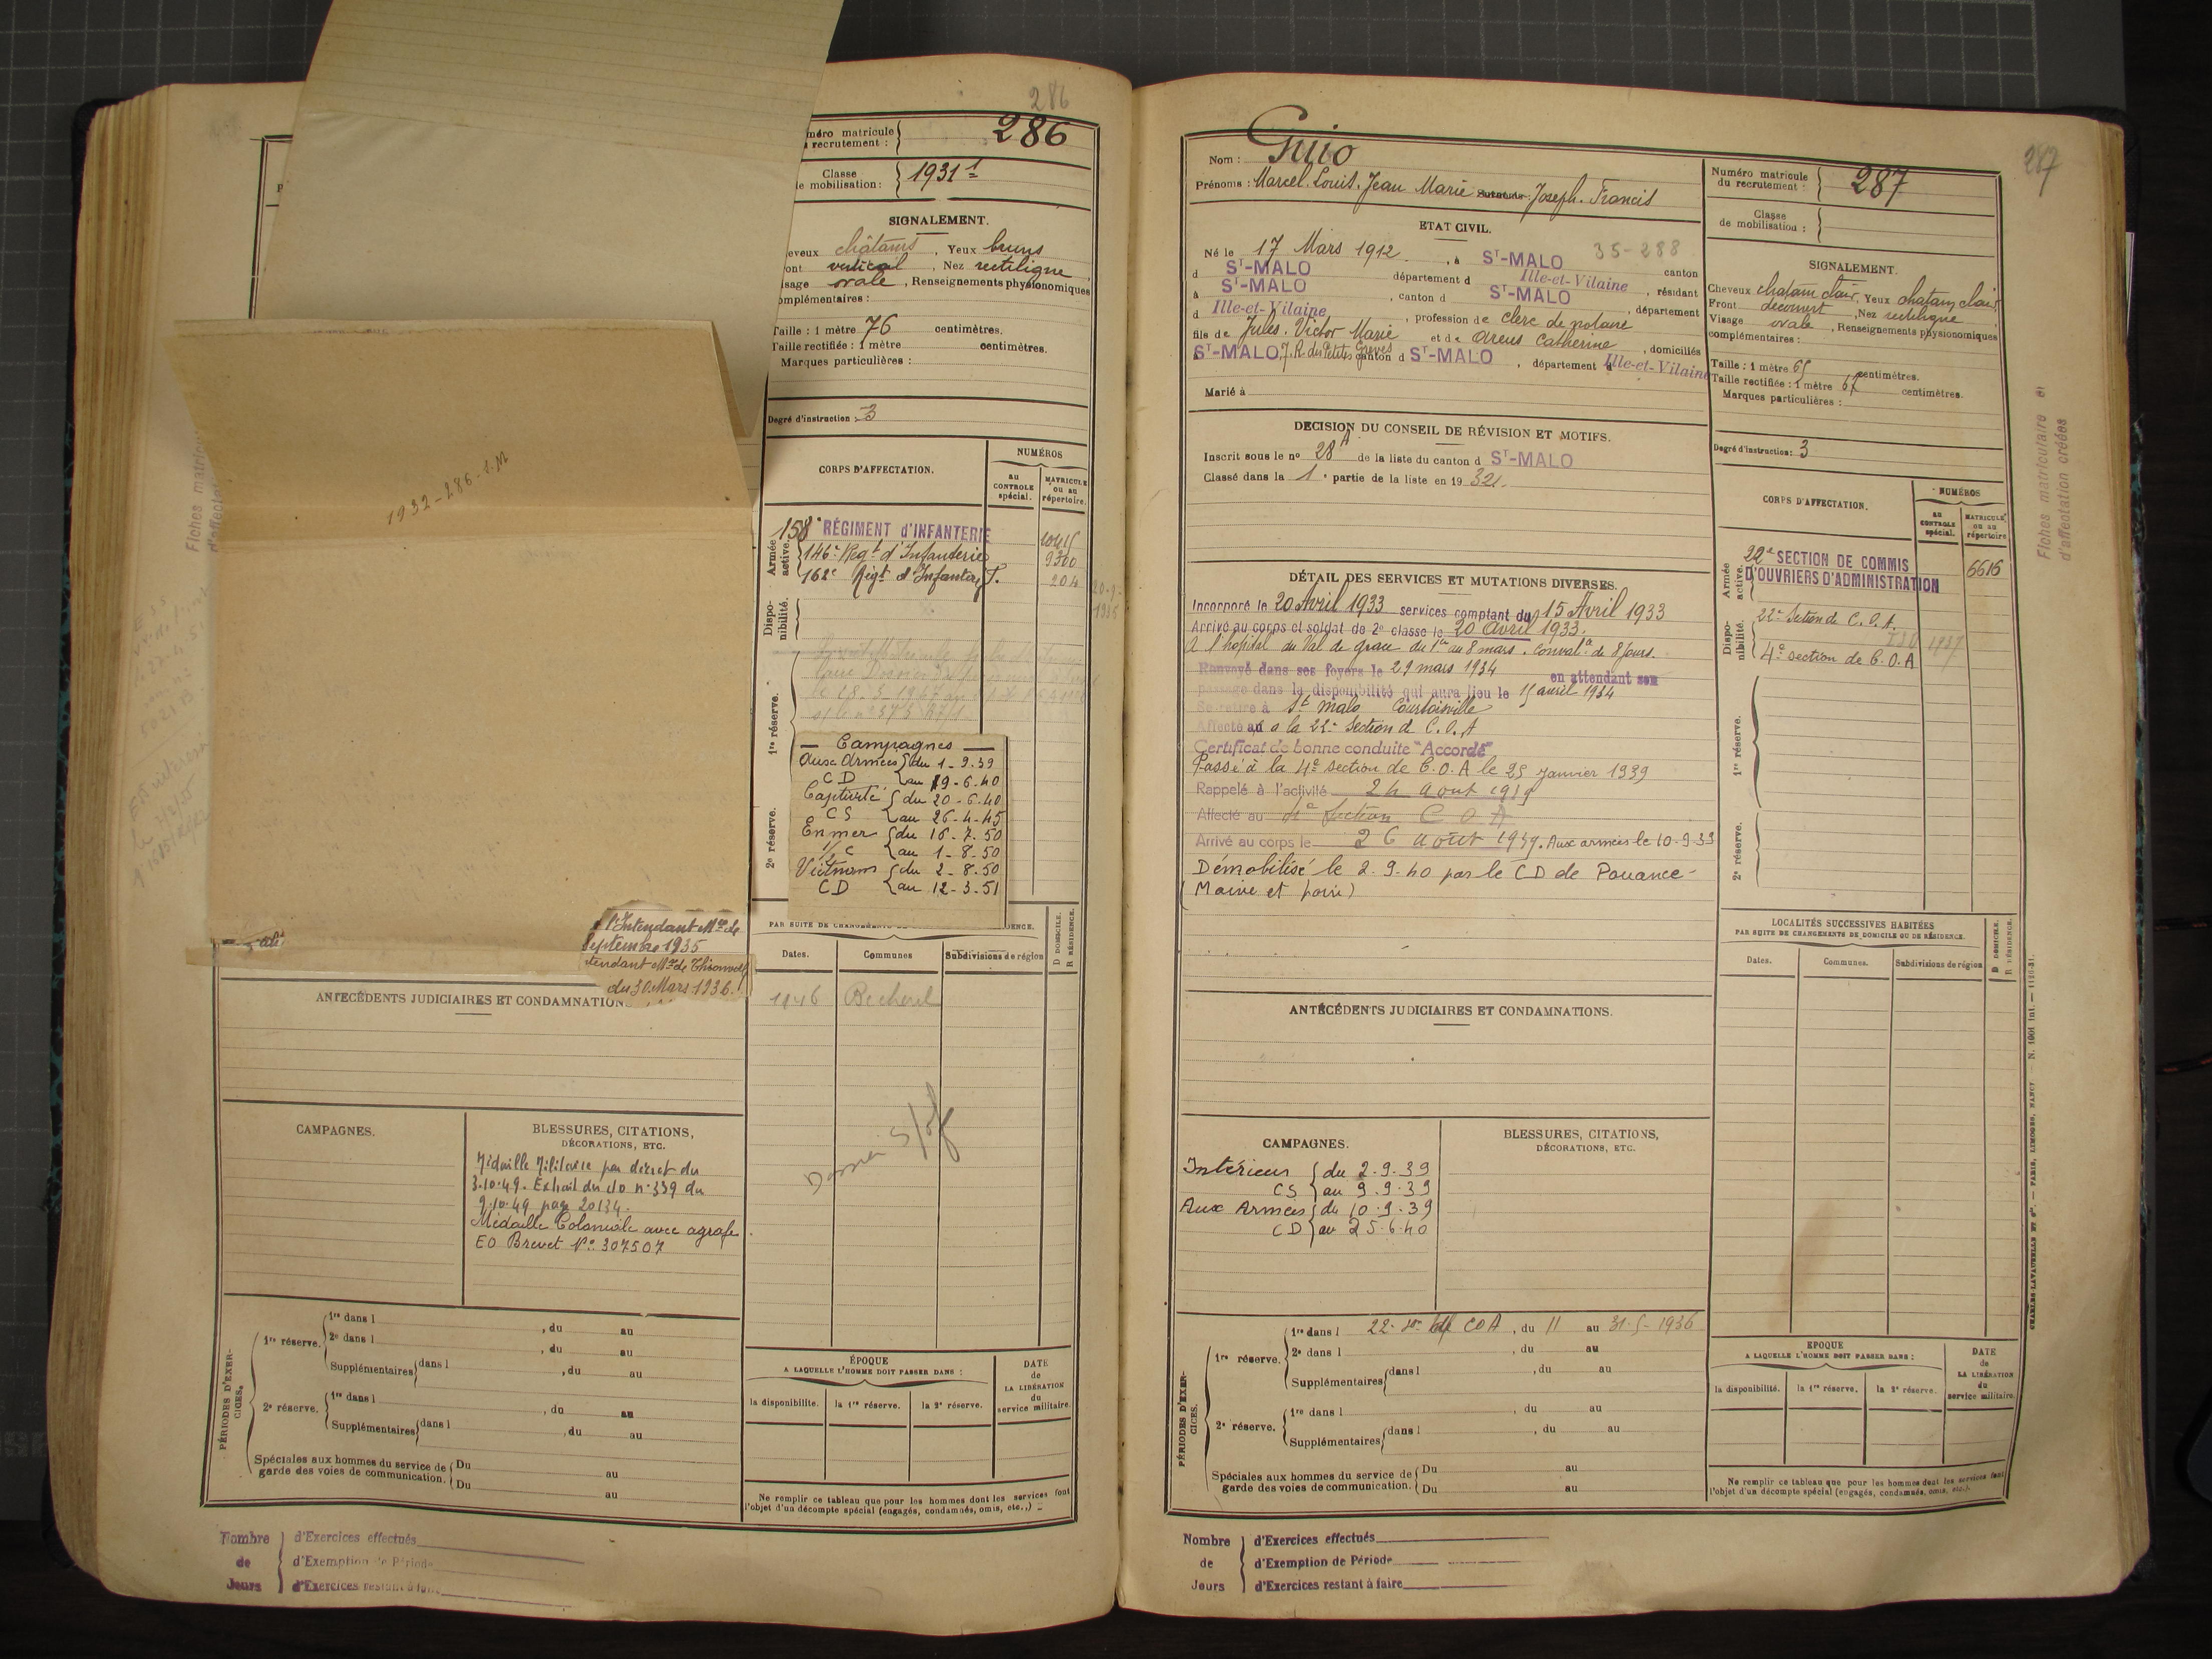 286
286
méro matricule
recrutement :
Classe
e mobilisation :
1931
SIGNALEMENT.
eveux châtains, Yeux bruns
ont vertical, Nez rectiligne
sage ovale, Renseignements physionomiques
omplémentaires :
Taille : 1 mètre 76 centimètres.
Taille rectifiée : 1 mètre centimètres.
Marques particulières :
Degré d'instruction : 3
1932-286-1.M
CORPS D'AFFECTATION.
NUMÉROS
au CONTROLE spécial.
MATRICULE ou au répertoire.
Armée active.
158e RÉGIMENT d'INFANTERIE
146e Regt d'Infanterie 9300
162e Régt d'Infanterie F. 204
Dispo-nibilité.
1re réserve.
2e réserve.
Campagnes
Aux Armées du 1-9-39
CD au 19-6-40
Captivité du 20-6-40
CS au 26-4-45
En mer du 16-7-50
1/2 C au 1-8-50
Vietnam du 2-8-50
CD au 12-3-51
l'Intendant Mre de
Septembre 1935
tendant Mre de Thionville
du 30 Mars 1936.
PAR SUITE DE CHANGEMENTS
DENCE.
Dates.
Communes
Subdivisions de région
D DOMICILE.
R RÉSIDENCE.
1946 Becherel
ANTÉCÉDENTS JUDICIAIRES ET CONDAMNATION
Dossier S/off
CAMPAGNES.
BLESSURES, CITATIONS,
DÉCORATIONS, ETC.
Médaille Militaire par décret du
3.10.49. Extrait du JO n° 339 du
9.10.49 page 20134.
Médaille Coloniale avec agrafe
EO Brevet N° 307507
PÉRIODES D'EXER-CICES.
1re réserve.
1re dans l , du au
2e dans l , du au
Supplémentaires dans l , du au
2e réserve.
1re dans l , du au
Supplémentaires dans l , du au
Spéciales aux hommes du service de
garde des voies de communication.
Du au
Du au
ÉPOQUE
A LAQUELLE L'HOMME DOIT PASSER DANS :
la disponibilité.
la 1re réserve.
la 2e réserve.
DATE
de
LA LIBÉRATION
du
service militaire.
Ne remplir ce tableau que pour les hommes dont les services font
l'objet d'un décompte spécial (engagés, condamnés, omis, etc..)
Nombre
de
Jours
d'Exercices effectués
d'Exemption de Période
d'Exercices restant à faire
287
Nom : Guio
Prénoms : Marcel. Louis. Jean Marie Surnoms : Joseph. Francis
Numéro matricule
du recrutement :
287
Classe
de mobilisation :
ETAT CIVIL.
Né le 17 Mars 1912, à ST-MALO 35-288 canton
d ST-MALO département d Ille-et-Vilaine, résidant
à ST-MALO, canton d ST-MALO, département
d Ille-et-Vilaine, profession de clerc de notaire
fils de Jules. Victor Marie et de Areus Catherine, domiciliés
à ST-MALO, 7. R. des Petites Grèves canton d ST-MALO, département d Ille-et-Vilaine
Marié à
SIGNALEMENT.
Cheveux chatain clair, Yeux chatain clair,
Front découvert, Nez rectiligne,
Visage ovale, Renseignements physionomiques
complémentaires :
Taille : 1 mètre 65 centimètres.
Taille rectifiée : 1 mètre 67 centimètres.
Marques particulières :
Degré d'instruction : 3
DECISION DU CONSEIL DE RÉVISION ET MOTIFS.
Inscrit sous le n° 28 A de la liste du canton d ST-MALO
Classé dans la 1e partie de la liste en 19 32
DÉTAIL DES SERVICES ET MUTATIONS DIVERSES.
Incorporé le 20 Avril 1933 services comptant du 15 Avril 1933
Arrivé au corps et soldat de 2e classe le 20 Avril 1933.
A l'hôpital du Val de grace du 1er au 8 mars. Convalce de 8 jours.
Renvoyé dans ses foyers le 29 mars 1934 en attendant son
passage dans la disponibilité qui aura lieu le 15 avril 1934
Se retire à St Malo Courtoisville
Affecté à la 22e Section de C.O.A
Certificat de bonne conduite "Accordé"
Passé à la 4e section de C.O.A le 25 Janvier 1939
Rappelé à l'activité 24 aout 1939
Affecté au 4e section C O A
Arrivé au corps le 26 août 1939. Aux armées le 10-9-39
Démobilisé le 2.9.40 par le CD de Pouancé
(Maine et Loire)
CORPS D'AFFECTATION.
NUMÉROS
au CONTROLE spécial.
MATRICULE ou au répertoire.
Armée active.
22e SECTION DE COMMIS
D'OUVRIERS D'ADMINISTRATION 6616
Dispo-nibilité.
22e Section de C.O.A.
4e section de C.O.A 1937
1re réserve.
2e réserve.
LOCALITÉS SUCCESSIVES HABITÉES
PAR SUITE DE CHANGEMENTS DE DOMICILE OU DE RÉSIDENCE.
Dates.
Communes.
Subdivisions de région
D DOMICILE.
R RÉSIDENCE.
Fiches matriculaire et
d'affectation créées
ANTÉCÉDENTS JUDICIAIRES ET CONDAMNATIONS.
CAMPAGNES.
Intérieur du 2.9.39
CS au 9.9.39
Aux Armées du 10.9.39
CD au 25.6.40
BLESSURES, CITATIONS,
DÉCORATIONS, ETC.
PÉRIODES D'EXER-CICES.
1re réserve.
1re dans l 22e COA, du 11 au 31-5-1936
2e dans l , du au
Supplémentaires dans l , du au
2e réserve.
1re dans l , du au
Supplémentaires dans l , du au
Spéciales aux hommes du service de
garde des voies de communication.
Du au
Du au
EPOQUE
A LAQUELLE L'HOMME DOIT PASSER DANS :
la disponibilité.
la 1re réserve.
la 2e réserve.
DATE
de
LA LIBÉRATION
du
service militaire.
Ne remplir ce tableau que pour les hommes dont les services font
l'objet d'un décompte spécial (engagés, condamnés, omis, etc.).
Nombre
de
Jours
d'Exercices effectués
d'Exemption de Période
d'Exercices restant à faire